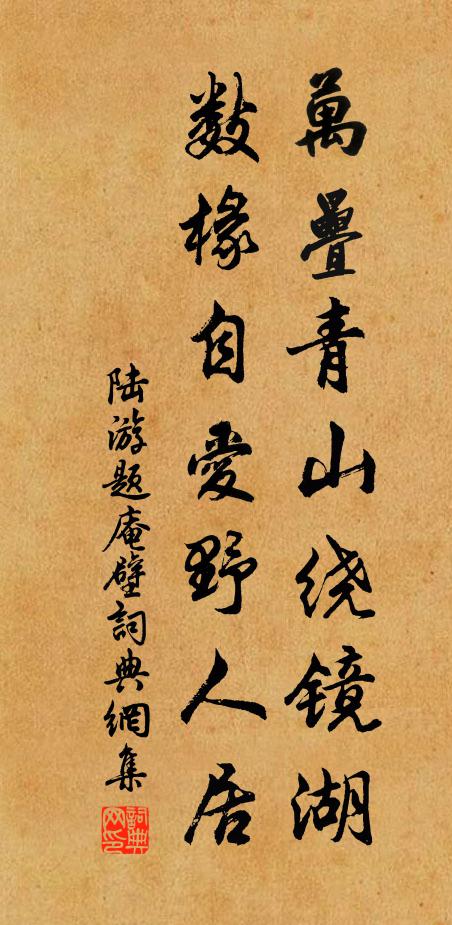 萬疊青山绕镜湖
數椽自愛野人居
陆游题庵壁詞典網集
詞典网印